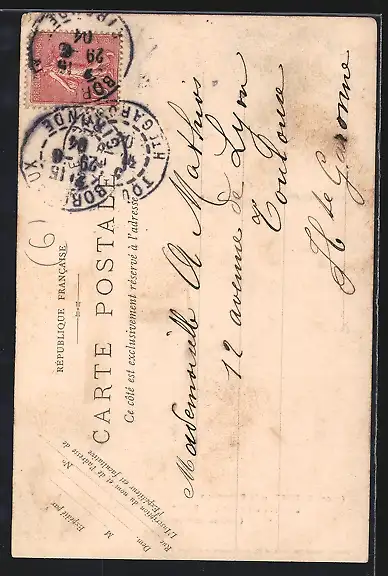 RÉPUBLIQUE FRANÇAISE
CARTE POSTALE
Ce côté est exclusivement réservé à l'adresse
Mademoiselle A Mathis
12 avenue de Lyon
Toulouse
Hte Garonne
(6)
Expédié par
M
Dem.
Rue
N°
L'inscription du nom et de l'adresse de
l'Expéditeur est facultative
BORDEAUX
GIRONDE
29
04